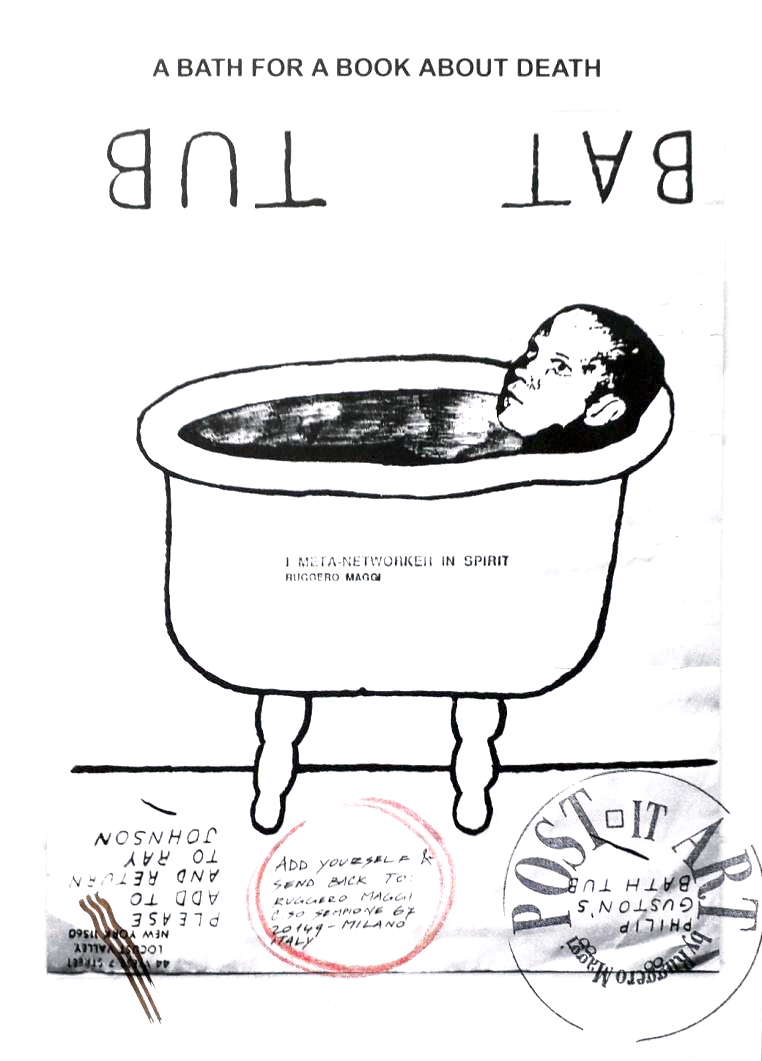 A BATH FOR A BOOK ABOUT DEATH
BAT TUB
1 META-NETWORKER IN SPIRIT
RUGGERO MAGGI
44 WEST 7 STREET
LOCUST VALLEY
NEW YORK 11560
PLEASE
ADD TO
AND RETURN
TO RAY
JOHNSON
ADD YOURSELF &
SEND BACK TO:
RUGGERO MAGGI
C.SO SEMPIONE 67
20149 - MILANO
ITALY
POST IT ART
by Ruggero Maggi
PHILIP
GUSTON'S
BATH TUB